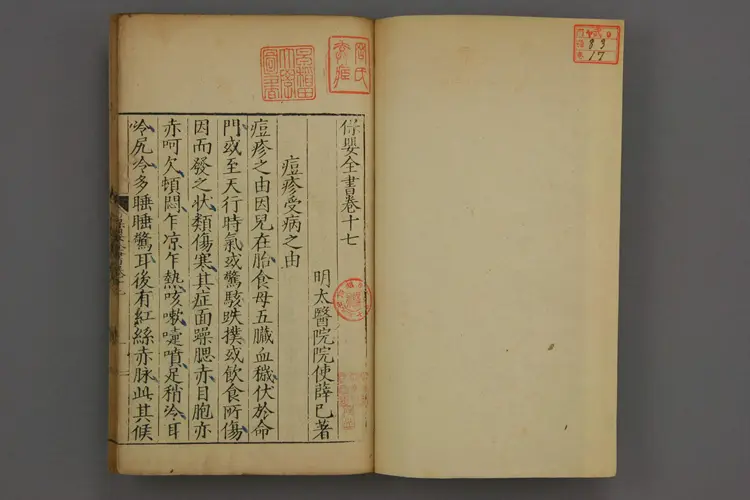 保嬰全書卷十七
明太醫院院使薛己著
痘疹受病之由
痘疹之由因兒在胎食母五臟血穢伏於命
門或至天行時氣或驚駭跌撲或飲食所傷
因而發之狀類傷寒其症面躁腮赤目胞亦
赤呵欠頓悶乍凉乍熱咳嗽嚏噴足稍冷耳
冷尻冷多睡睡驚耳後有紅絲赤脉此其候
83
17